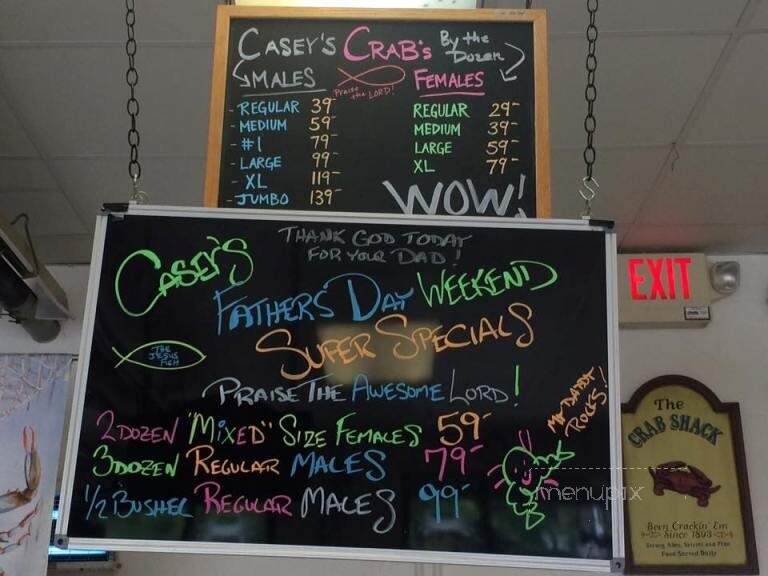 CASEY'S CRAB's By the Dozen
MALES Praise the LORD! FEMALES
- REGULAR 39-
- MEDIUM 59-
- #1 79-
- LARGE 99-
- XL 119-
- JUMBO 139-
REGULAR 29-
MEDIUM 39-
LARGE 59-
XL 79-
WOW!
THANK GOD TODAY
FOR YOUR DAD!
CASEY'S
FATHERS DAY WEEKEND
SUPER SPECIALS
THE
JESUS
FISH
PRAISE THE AWESOME LORD!
MY DADDY
ROCKS!
2 DOZEN "MIXED" SIZE FEMALES 59-
3 DOZEN REGULAR MALES 79-
1/2 BUSHEL REGULAR MALES 99-
menupix
EXIT
The
CRAB SHACK
Been Crackin' Em
Since 1803
Strong Ales, Spirits and Fine
Food Served Daily